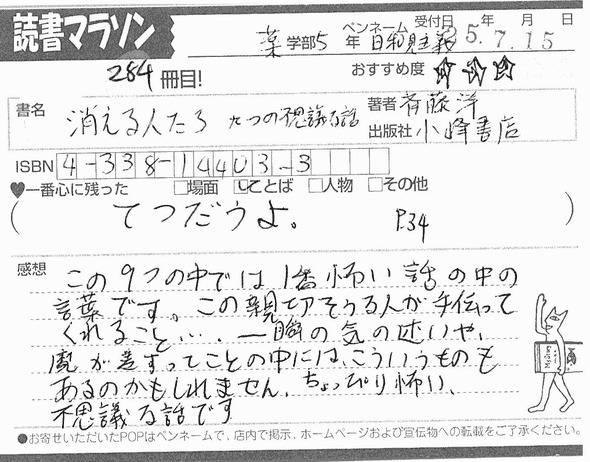 読書マラソン
284冊目!
薬学部5年 ペンネーム 日和見主義 受付日 25年7月15日
おすすめ度 ☆☆☆
書名 消える人たち 九つの不思議な話
著者 斉藤洋
出版社 小峰書店
ISBN 4-338-14403-3
♥一番心に残った □場面 ☑ことば □人物 □その他
(てつだうよ。 P.34)
感想 この9つの中では1番怖い話の中の
言葉です。この親切そうな人が手伝って
くれること…。一瞬の気の迷いや、
魔が差すってことの中には、こういうものも
あるのかもしれません。ちょっぴり怖い、
不思議な話です
●お寄せいただいたPOPはペンネームで、店内で掲示、ホームページおよび宣伝物への転載をご了承ください。